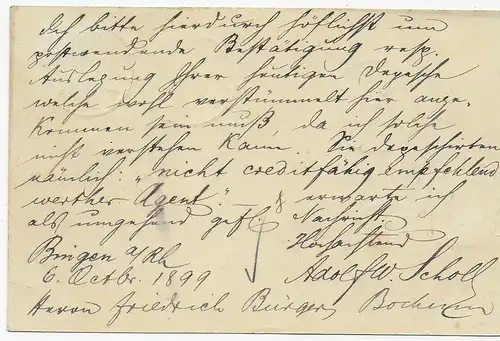 Ich bitte hierdurch höflichst um
postwendende Bestätigung resp.
Auslegung Ihrer heutigen Depesche
welche wohl verstümmelt hier ange-
kommen sein muß da ich solche
nicht verstehen kann. Sie depeschirten
nämlich: „nicht creditfähig, empfehlend
werther Agent." – & erwarte ich
als umgehend gefl. Nachricht.
Hochachtend
Bingen a/Rh Adolf W. Scholl
6. Octbr. 1899
Herrn Friedrich Bürger, Bochum